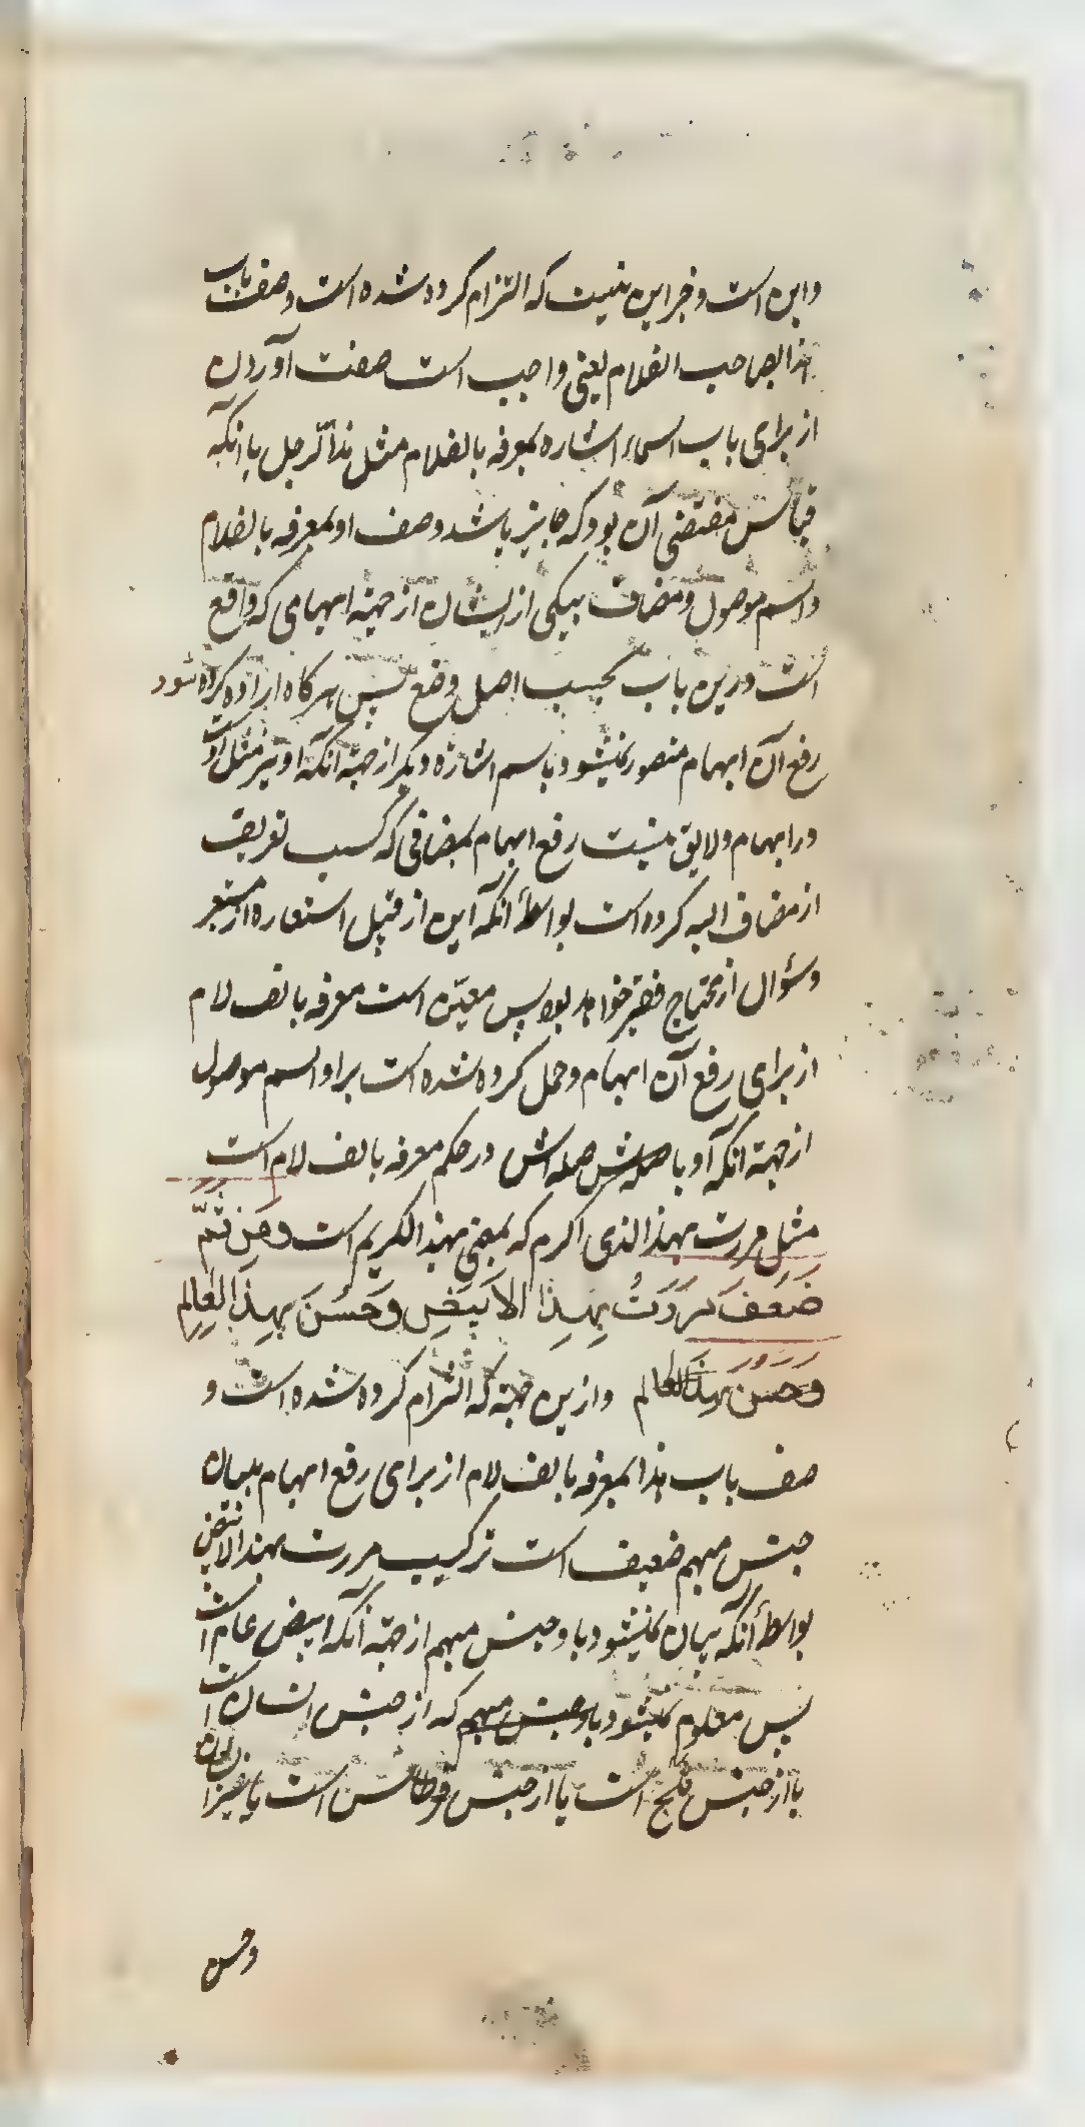 واین است و جز این نیست که التزام کرده شده است وصف باب
هذا بصاحب الفلام یعنی واجب است صفت آوردن
از برای باب اسماء اشاره بمعرفه بالفلام مثل هذا الرجل با آنکه
قیاس مقتضی آن بود که جایز باشد وصف او بمعرفه بالفلام
واسم موصول ومضاف بیکی از ایشان از جهة ابهامی که واقع
است درین باب بحسب اصل وضع پس هرکاه اراده کرده شود
رفع آن ابهام متصور نمیشود باسم اشاره دیکر از جهة آنکه او نیز مثل او
در ابهام ولایق نیست رفع ابهام بمضافی که کسب تعریف
از مضاف الیه کرده است بواسطۀ آنکه این از قبیل استعاره از مستعیر
وسؤال از محتاج فقیر خواهد بود پس معین است معرفه بالف لام
از برای رفع آن ابهام وحمل کرده شده است بر او اسم موصول
از جهة آنکه او با صلهاش صله اش در حکم معرفه بالف لام است
مثل مررت بهذا الذی اکرم که بمعنی بهذا الکریم است وَمِن ثَمَّ
ضَعَفَ مَرَرَتُ بِهذَا الاَبیَضِ وَحَسُنَ بِهذَا العالِمِ
وَحَسُنَ بِهذَا العالم وازین جهة که التزام کرده شده است و
صف باب هذا بمعرفه بالف لام از برای رفع ابهام ببیان
جنس مبهم ضعیف است ترکیب مررت بهذا الابیض
بواسطۀ آنکه بیان نمیشود باو جنس مبهم از جهة آنکه ابیض عام است
پس معلوم نمیشود باو جنس مبهم که از جنس انسان است
یا از جنس ثلج است یا از جنس قرطاس است یا غیر ایشان
وحسن